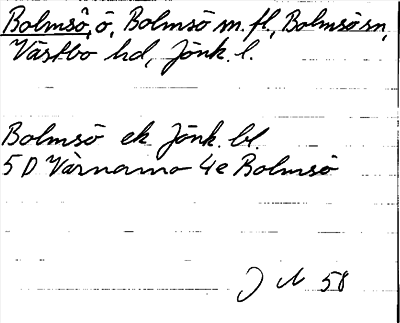 Bolmsö, ö, Bolmsö m.fl., Bolmsö sn,
Västbo hd, Jönk. l.
Bolmsö ek Jönk. bl.
5 D Värnamo 4e Bolmsö
58